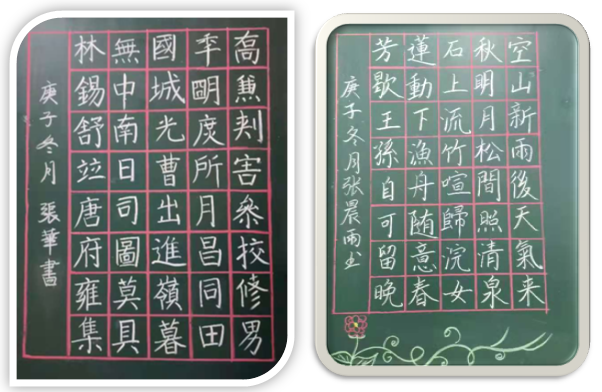 高刾害叅挍修男
平明度所月昌同田
國城光曹出進嶺暮
無中南日司圖莫具
林錫舒竝唐府雍集
庚子冬月 張華書
空山新雨後天氣来
秋明月松間照清泉
石上流竹喧歸浣女
蓮動下漁舟随意春
芳歇王孫自可留晚
庚子冬月张晨雨书